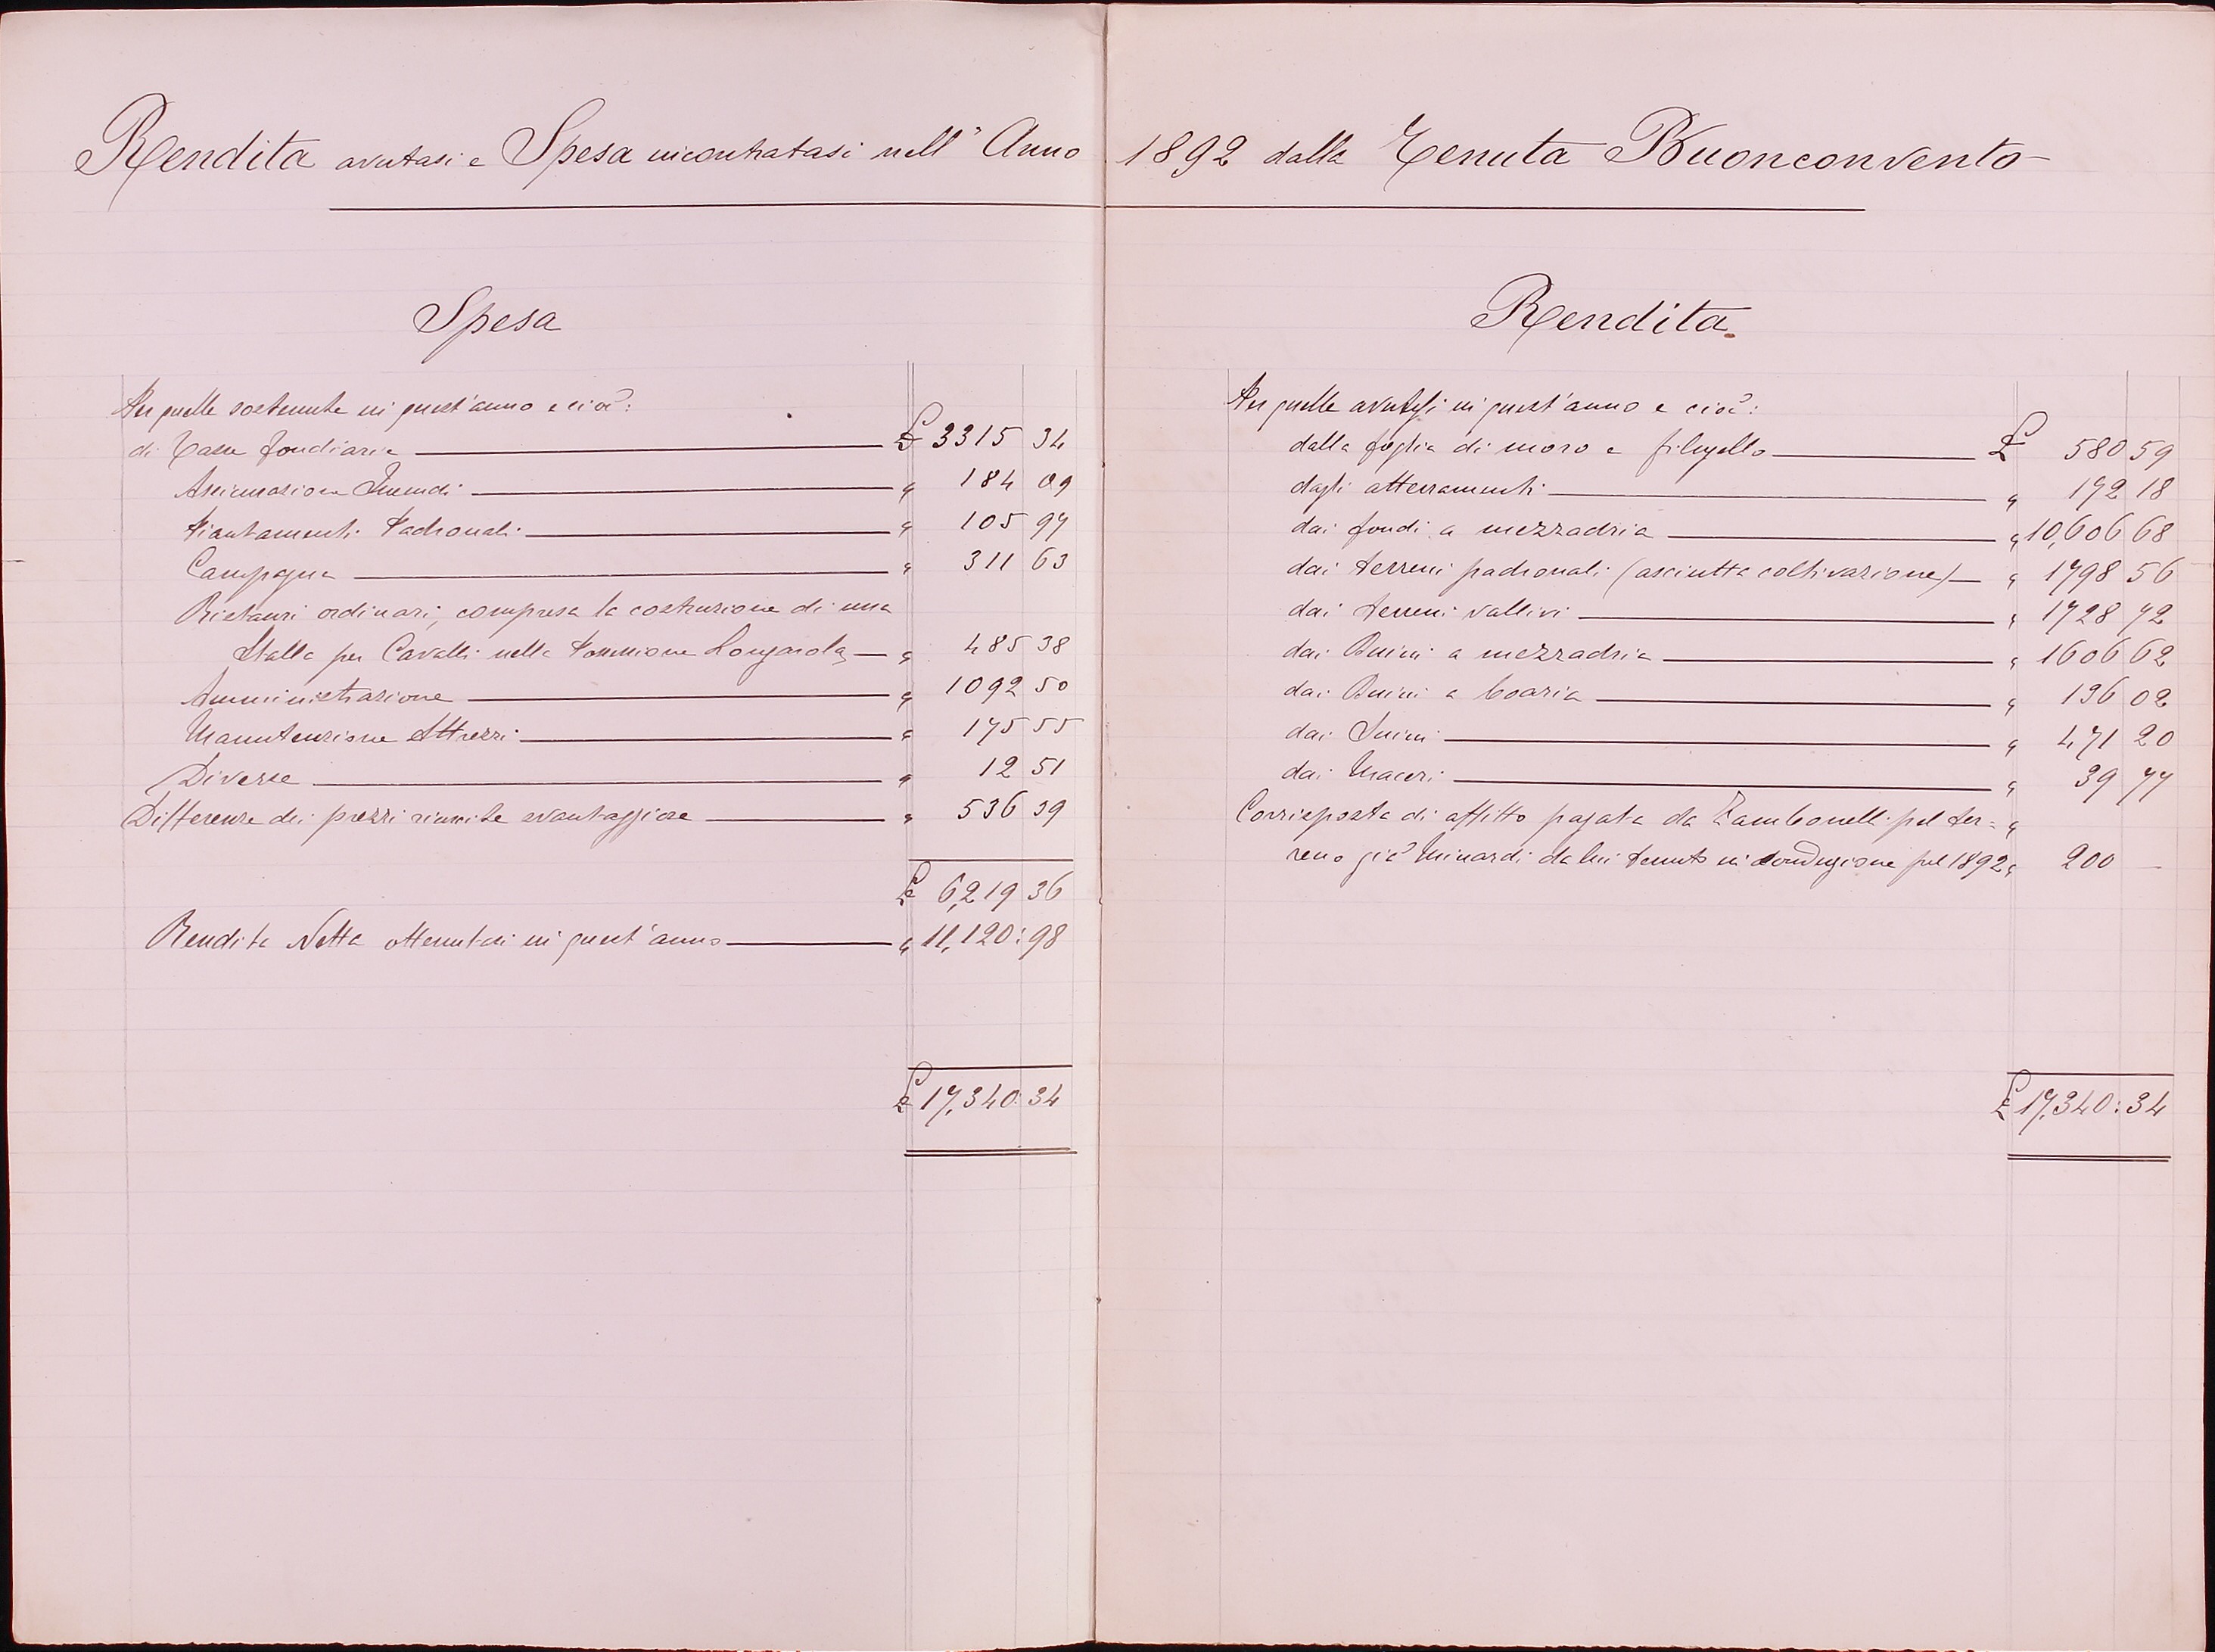 Rendita avutasi e Spesa incontratasi nell' Anno 1892 dalla Tenuta Buonconvento
Spesa
Per quelle sostenute in quest'anno e cioè:
di Tasse fondiarie £ 3315 34
Assicurazione Incendi " 184 09
Piantamenti Padronali " 105 97
Campagna " 311 63
Ristauri ordinari, compresa la costruzione di una
Stalla per Cavalli nella Possessione Longarola " 485 38
Amministrazione " 1092 50
Manutenzione Attrezzi " 175 55
Diverse " 12 51
Differenze dei prezzi riuscite svantaggiose " 536 39
£ 6,219 36
Rendita Netta ottenutasi in quest'anno " 11,120:98
£ 17,340:34
Rendita
Per quelle avutesi in quest'anno e cioè:
dalla foglia di moro e filugello £ 580 59
dagli atterramenti " 172 18
dai fondi a mezzadria " 10,606 68
dai terreni padronali (asciutta coltivazione) " 1798 56
dai terreni vallivi " 1728 72
dai Bovini a mezzadria " 1606 62
dai Bovini a boaria " 136 02
dai Suini " 471 20
dai Maceri " 39 77
Corrisposta di affitto pagata da Zambonelli pel ter= "
reno già Minardi da lui tenuto in conduzione pel 1892 " 200 —
£ 17,340:34